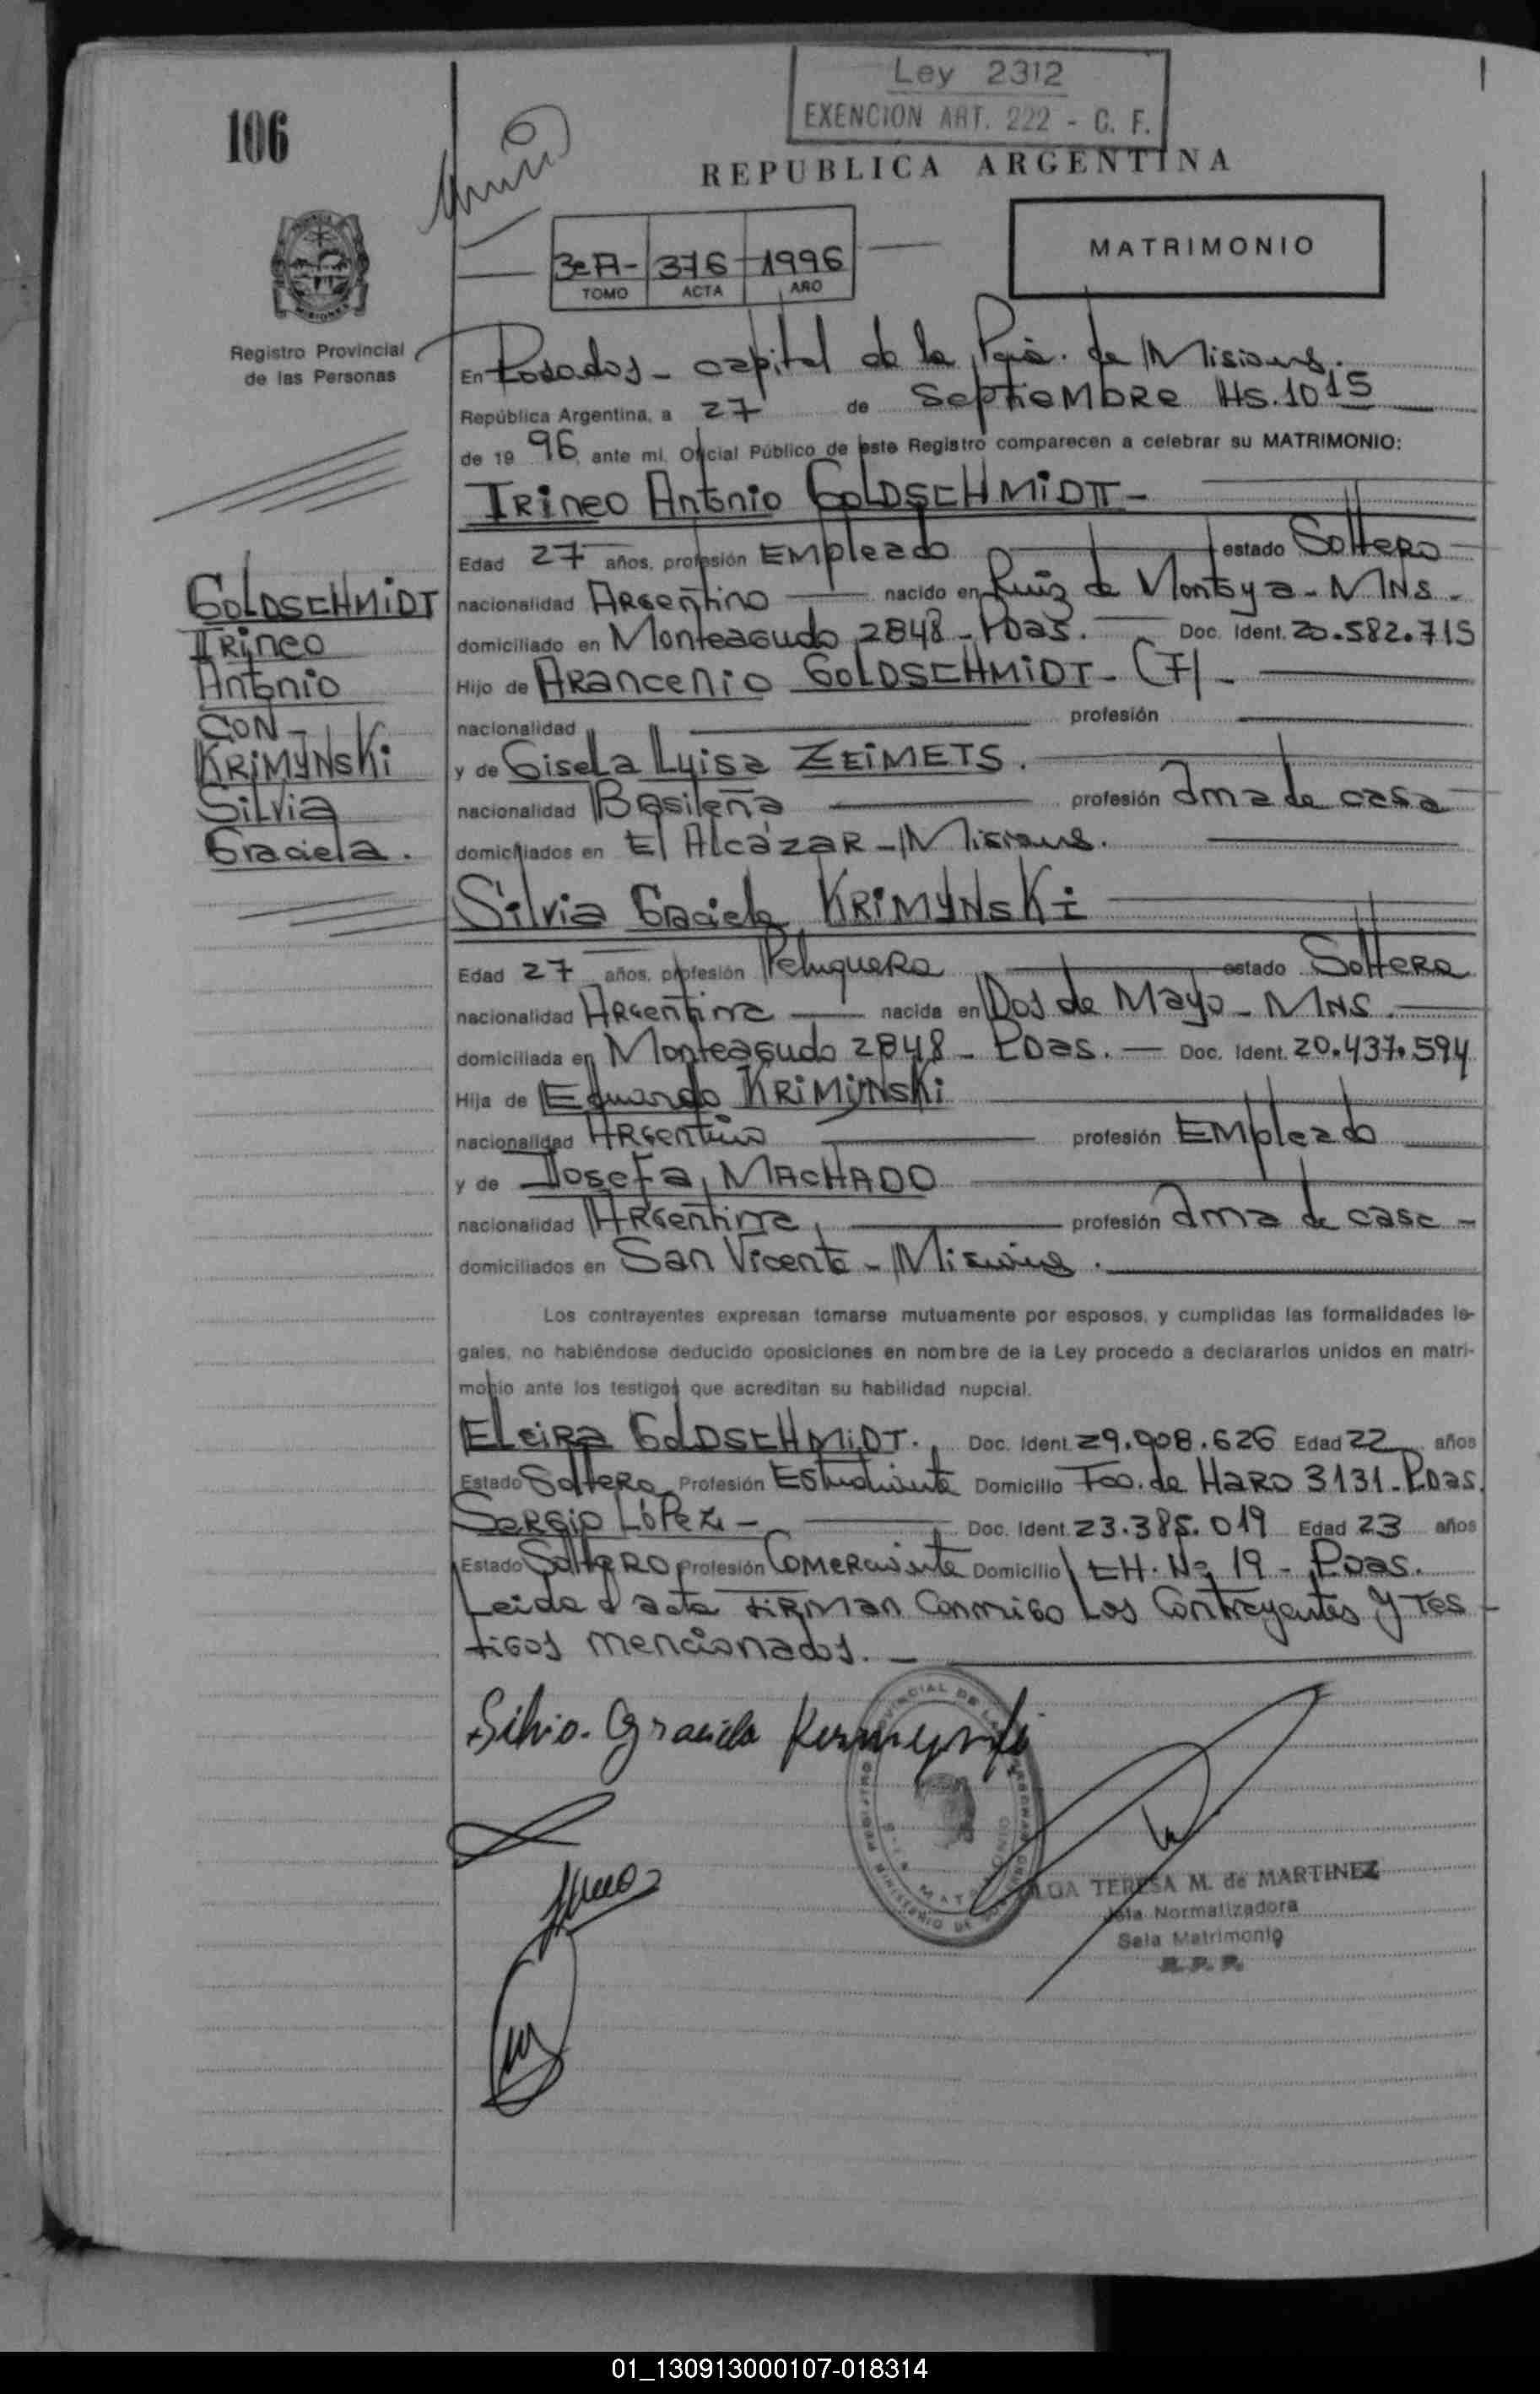 Ley 2312
EXENCION ART. 222 - C. F.
106
REPUBLICA ARGENTINA
MATRIMONIO
3eA- 376 1996
TOMO ACTA AÑO
Registro Provincial
de las Personas
En Posadas - capital de la Pcia. de Misiones.
República Argentina, a 27 de Septiembre Hs. 10 15
de 19 96, ante mi, Oficial Público de este Registro comparecen a celebrar su MATRIMONIO:
Irineo Antonio GOLDSCHMIDT -
Edad 27 años, profesión Empleado estado Soltero
nacionalidad Argentino nacido en Ruiz de Montoya - Mns. -
domiciliado en Monteagudo 2848 - Pdas. Doc. Ident. 20.582.715
Hijo de Arancenio GOLDSCHMIDT - (F) -
nacionalidad profesión
y de Gisela Luisa ZEIMETS.
nacionalidad Basileña profesión ama de casa
domiciliados en El Alcázar - Misiones.
Silvia Graciela KRIMYNSKI
Edad 27 años, profesión Peluquera estado Soltera
nacionalidad Argentina nacida en Dos de Mayo - Mns.
domiciliada en Monteagudo 2848 - Pdas. - Doc. Ident. 20.437.594
Hija de Eduardo KRIMYNSKI
nacionalidad Argentino profesión Empleado
y de Josefa MACHADO
nacionalidad Argentina profesión ama de casa -
domiciliados en San Vicente - Misiones.
Los contrayentes expresan tomarse mutuamente por esposos, y cumplidas las formalidades le-
gales, no habiéndose deducido oposiciones en nombre de la Ley procedo a declararlos unidos en matri-
monio ante los testigos que acreditan su habilidad nupcial.
Elcira GOLDSCHMIDT. Doc. Ident. 29.908.626 Edad 22 años
Estado Soltera Profesión Estudiante Domicilio Fco. de Haro 3131 - Pdas.
Sergio López - Doc. Ident. 23.385.019 Edad 23 años
Estado Soltero Profesión Comerciante Domicilio CH. Nº 19 - Pdas.
Leida el acta firman conmigo los contrayentes y tes-
tigos mencionados. -
GOLDSCHMIDT
Irineo
Antonio
CON -
KRIMYNSKI
Silvia
Graciela.
Silvia Graciela Krimynski
TERESA M. de MARTINEZ
Jefa Normalizadora
Sala Matrimonio
R. P. P.
01_130913000107-018314